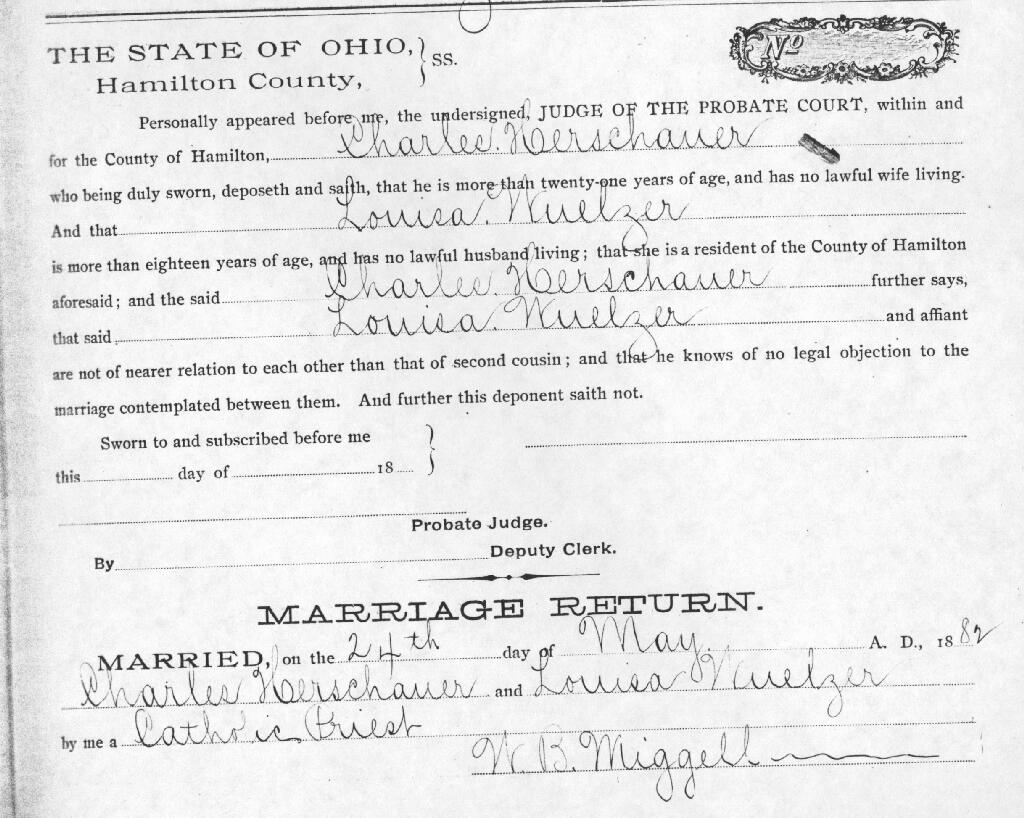 THE STATE OF OHIO, } SS.
Hamilton County,
Nº
Personally appeared before me, the undersigned, JUDGE OF THE PROBATE COURT, within and
for the County of Hamilton, Charles Herschauer
who being duly sworn, deposeth and saith, that he is more than twenty-one years of age, and has no lawful wife living.
And that Louisa Wuelzer
is more than eighteen years of age, and has no lawful husband living; that she is a resident of the County of Hamilton
aforesaid; and the said Charles Herschauer further says,
that said Louisa Wuelzer and affiant
are not of nearer relation to each other than that of second cousin; and that he knows of no legal objection to the
marriage contemplated between them. And further this deponent saith not.
Sworn to and subscribed before me }
this day of 18
Probate Judge.
By Deputy Clerk.
MARRIAGE RETURN.
MARRIED, on the 24th day of May. A. D., 1882
Charles Herschauer and Louisa Wuelzer
by me a Catholic Priest
W. B. Miggell